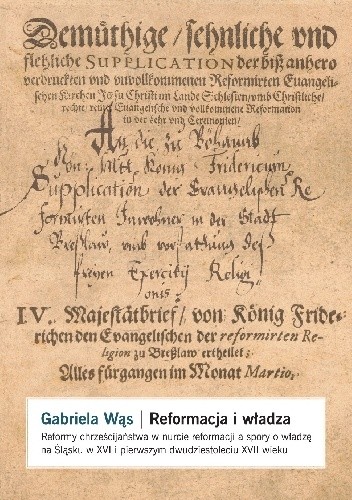 Demüthige / sehnliche vnd
flehliche SUPPLICATION der biß anhero
verdruckten vnd vnvollkommenen Reformirten Euangeli-
schen Kirchen Jesu Christi im Lande Schlesien / vmb Christliche /
rechte, reine Euangelische vnd vollkommene Reformation
in der Lehr vnd Ceremonien /
An die zu Böhaimb
Kön: Matt König Fridericum
Supplication der Evangelischen Re
formirten Inwohner in der Stadt
Breßlaw, vmb verstattung deß
freyen Exercitij Religi
onis
IV. Majestätbrief / von König Fride-
richen den Evangelischen der reformirten Re-
ligion zu Breßlaw ertheilet;
Alles fürgangen im Monat Martio.
Gabriela Wąs | Reformacja i władza
Reformy chrześcijaństwa w nurcie reformacji a spory o władzę
na Śląsku w XVI i pierwszym dwudziestoleciu XVII wieku